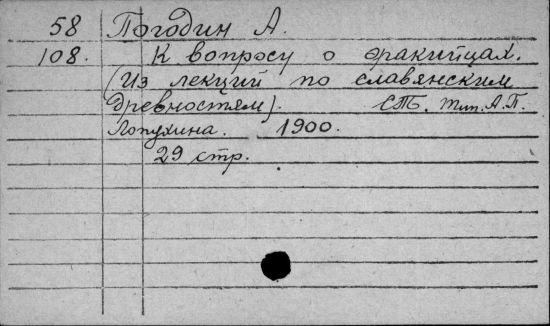 58 Погодин А.
108. К вопросу о фракийцах.
(Из лекций по славянским
древностям). СПб. тип. А.П.
Лопухина. 1900.
29 стр.